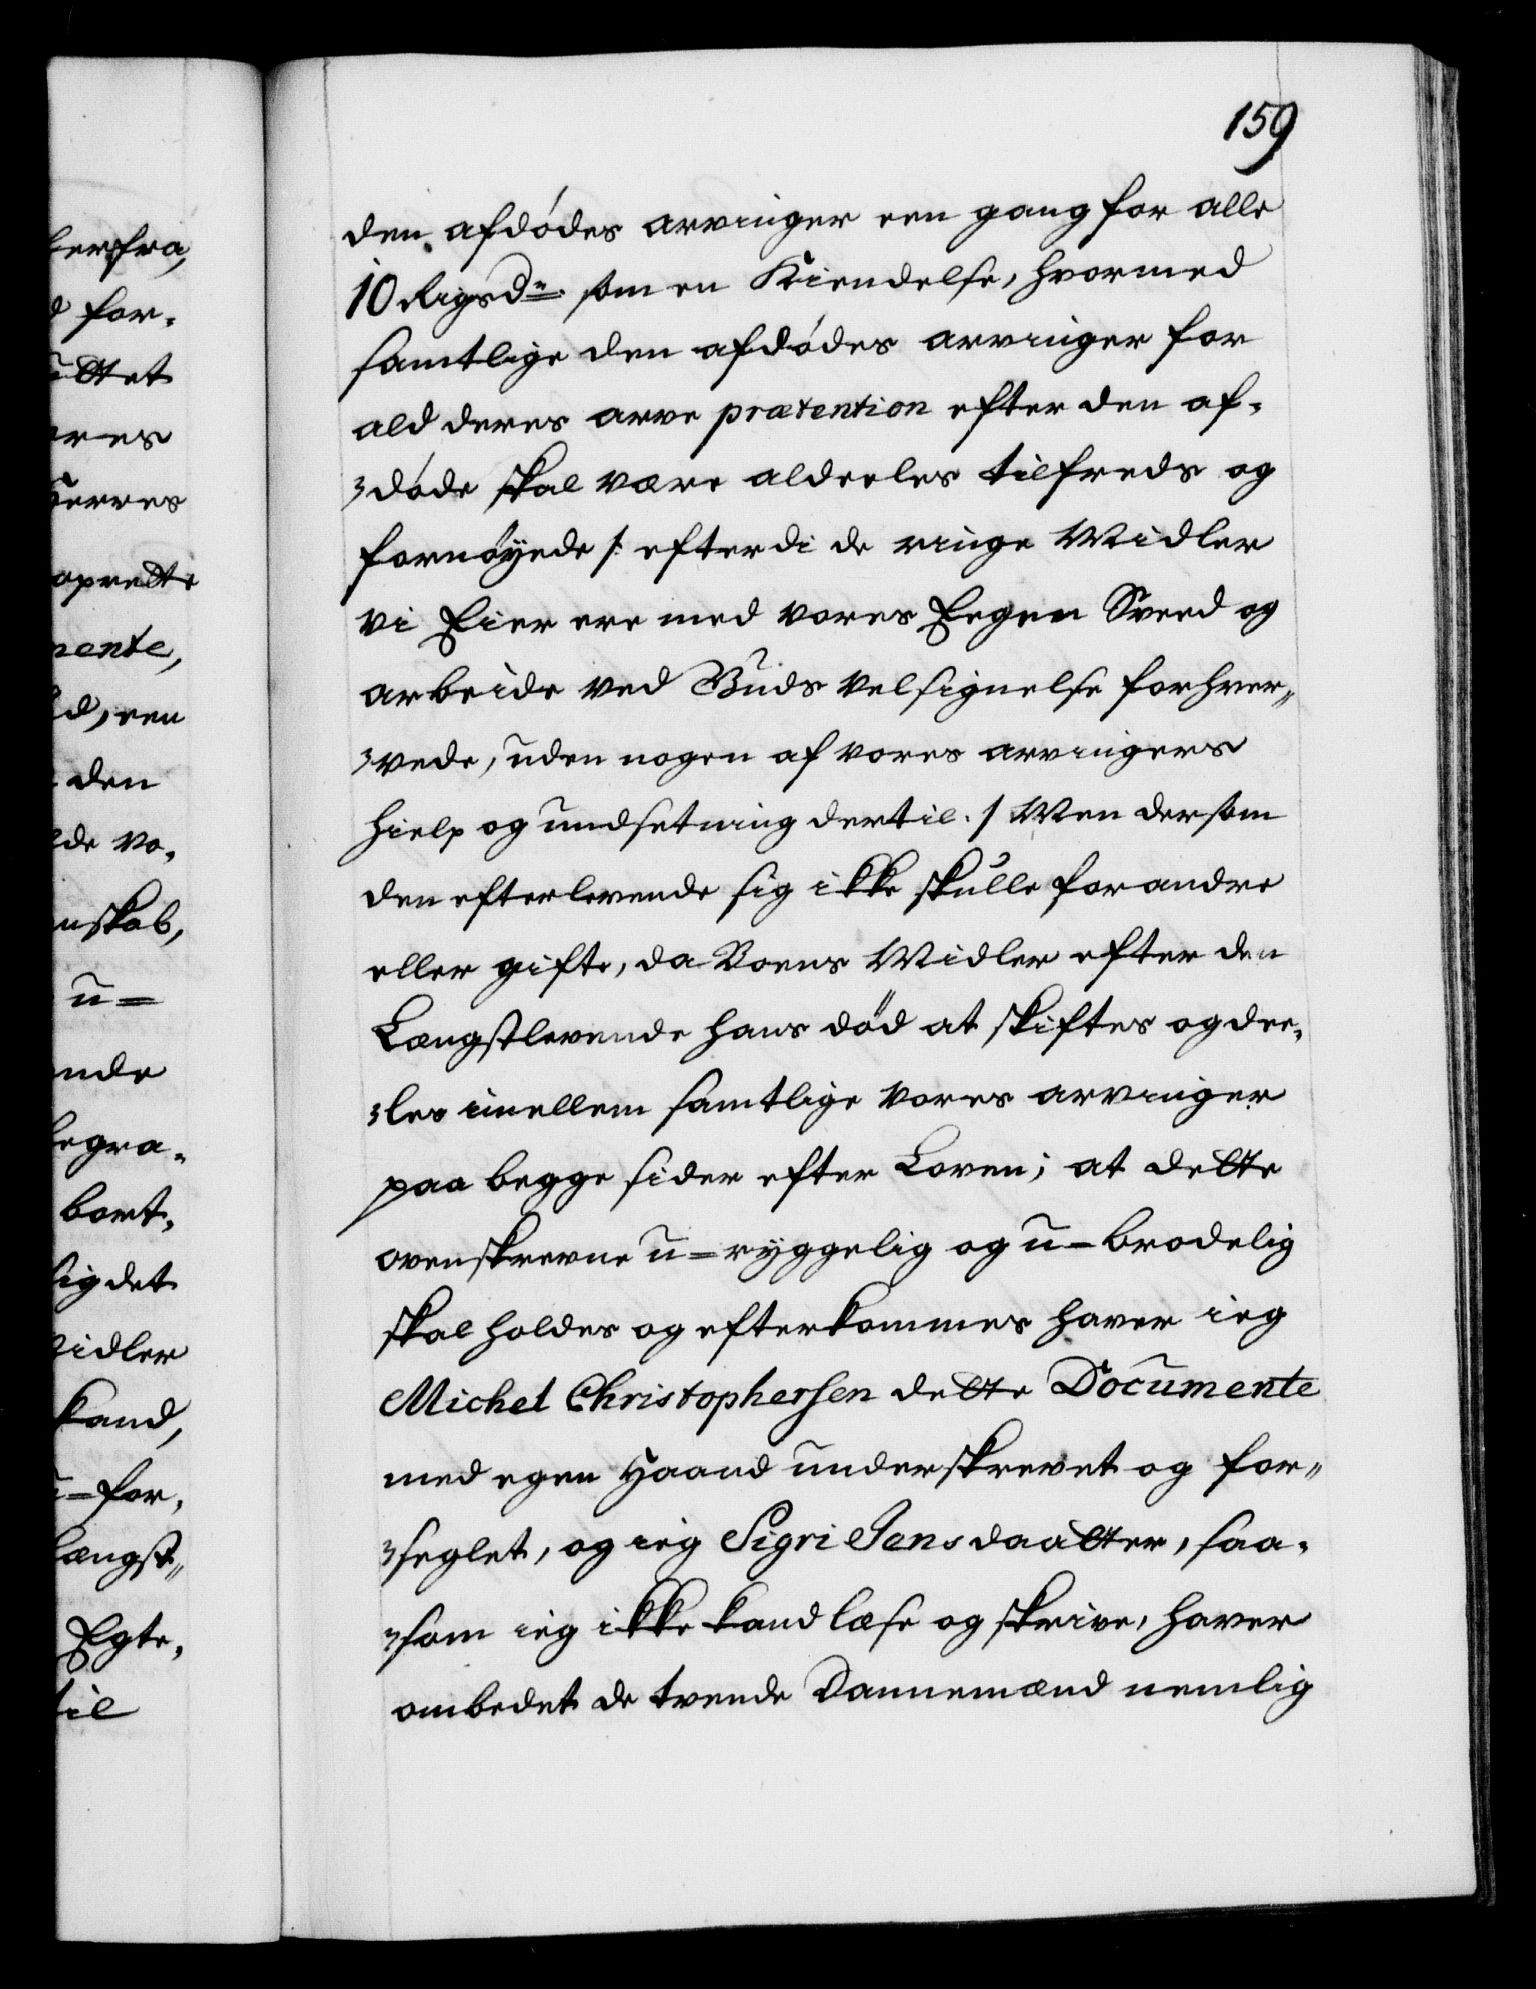 159
den afdødes arvinger een gang for alle
10 Rigsdr. som en Kiendelse, hvormed
samtlige den afdødes arvinger for
ald deres arve prætention efter den af-
døde skal være aldeeles tilfreds og
fornøyede /: efterdi de ringe Midler
vi Eier ere med vores Eegen Sveed og
arbeide ved Guds velsignelse forhver-
vede, uden nogen af vores arvingers
hielp og undsetning dertil. / Men dersom
den efterlevende sig ikke skulle forandre
eller gifte, da Boens Midler efter den
Længstlevende hans død at skiftes og dee-
les imellem samtlige vores arvinger
paa begge sider efter Loven; at dette
ovenskrevne u-ryggelig og u-brodelig
skal holdes og efterkommes haver ieg
Michel Christophersen dette Documente
med egen Haand underskrevet og for-
seglet, og ieg Sigri Jensdaatter, saa-
som ieg ikke kand læse og skrive, haver
ombedet de tvende Dannemænd nemlig